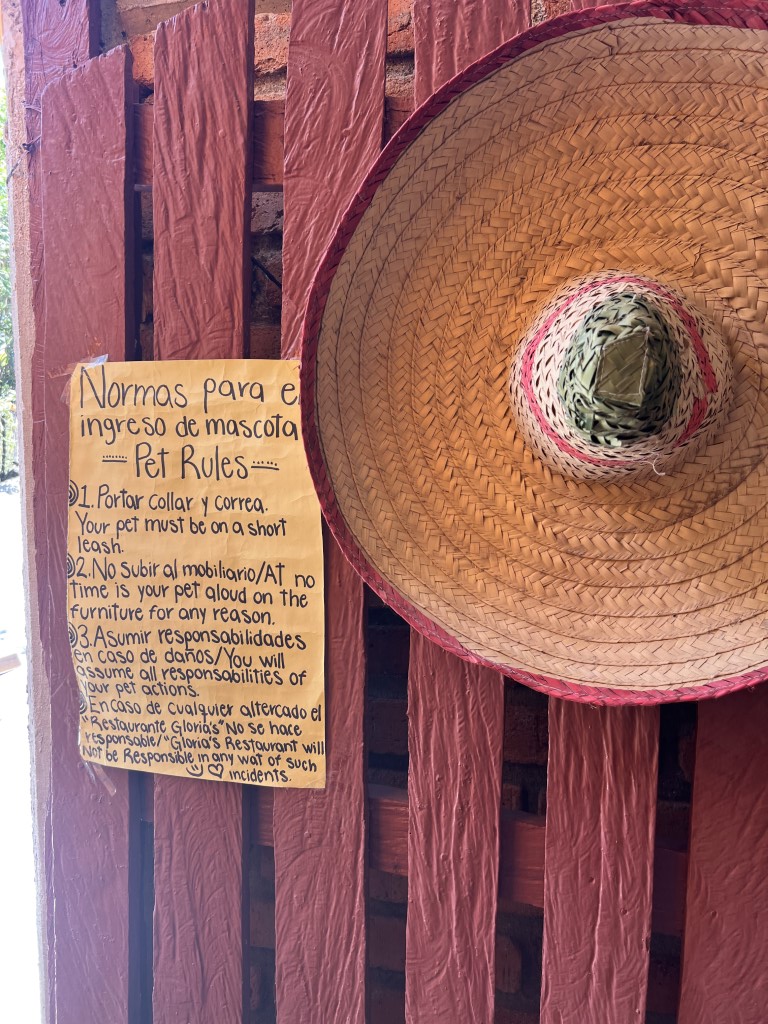 Normas para el
ingreso de mascota
Pet Rules
1. Portar collar y correa.
Your pet must be on a short
leash.
2. No subir al mobiliario/At no
time is your pet aloud on the
furniture for any reason.
3. Asumir responsabilidades
en caso de daños/You will
assume all responsabilities of
your pet actions.
En caso de cualquier altercado el
"Restaurante Gloria's" No se hace
responsable/"Gloria's Restaurant will
Not be Responsible in any wat of such
incidents.